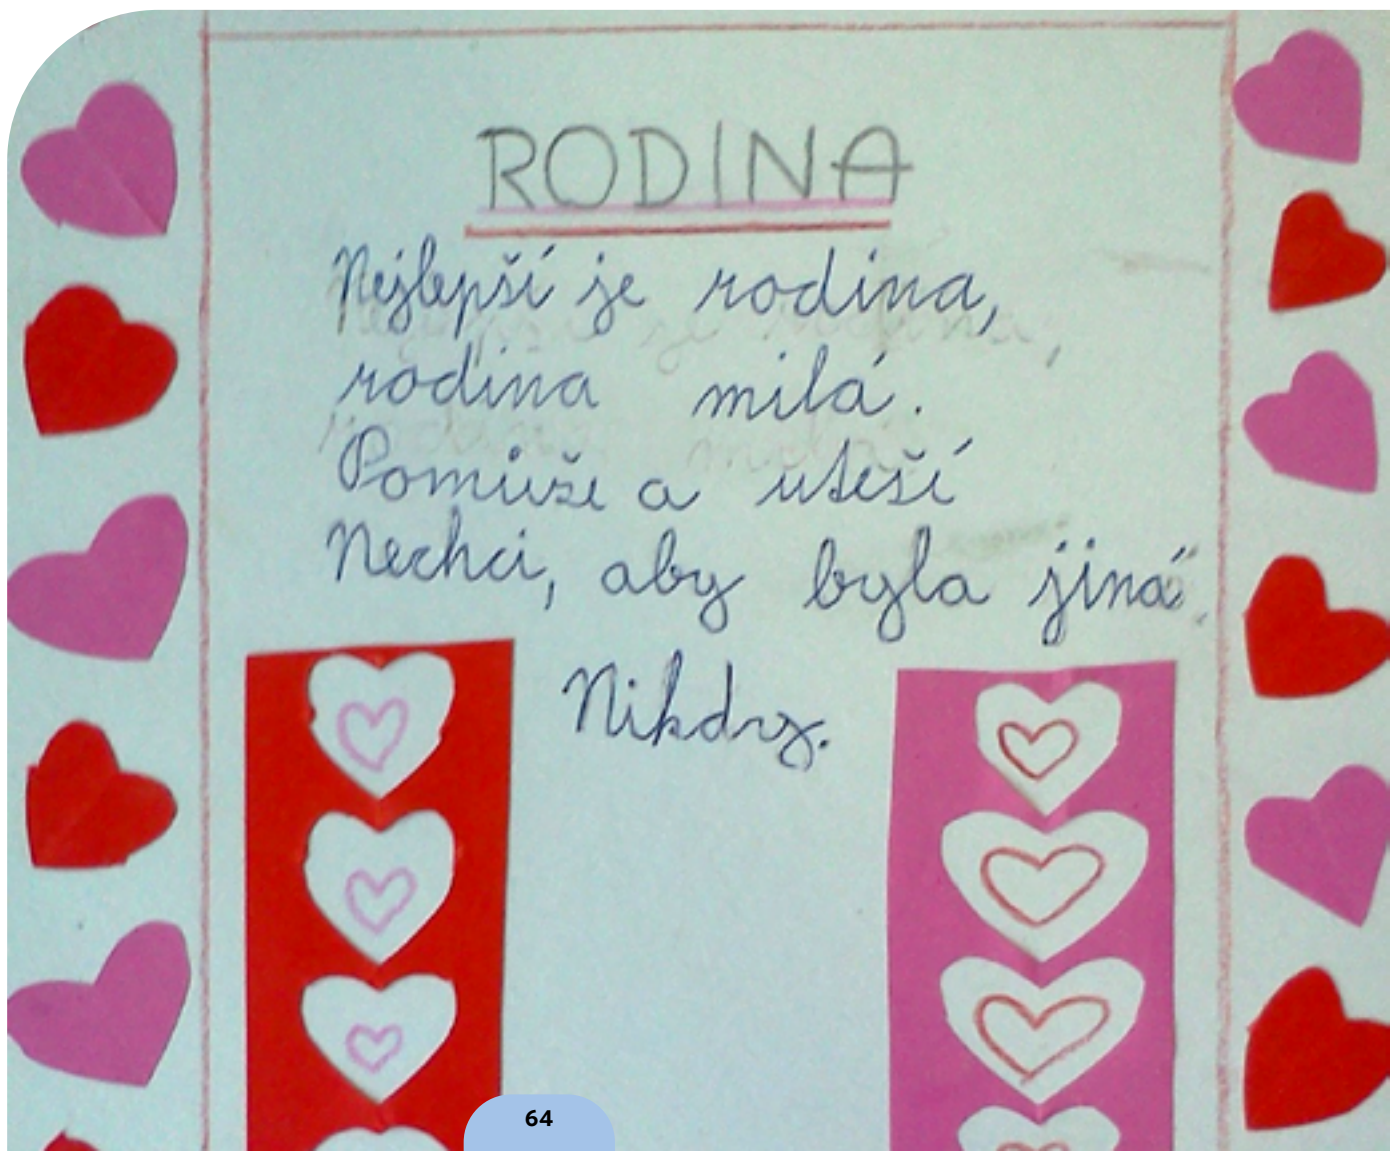 RODINA
Nejlepší je rodina,
rodina milá.
Pomůže a uteší
Nechci, aby byla jiná.
Nikdy.
64